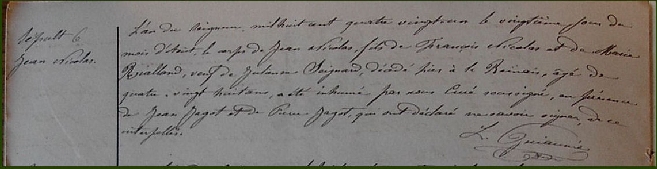 Sépult. 6
Jean Nicolas.
L'an du Seigneur, mil huit cent quatre vingt onze le vingtième jour du
mois d'Août, le corps de Jean Nicolas, fils de François Nicolas et de Marie
Rialland, veuf de Julienne Seignard, décédé hier à la, âgé de
quatre vingt huit ans, a été inhumé par nous Curé soussigné, en présence
de Jean Jagot et de Pierre Jagot, qui ont déclaré ne savoir signer, de ce
interpellés.
L.